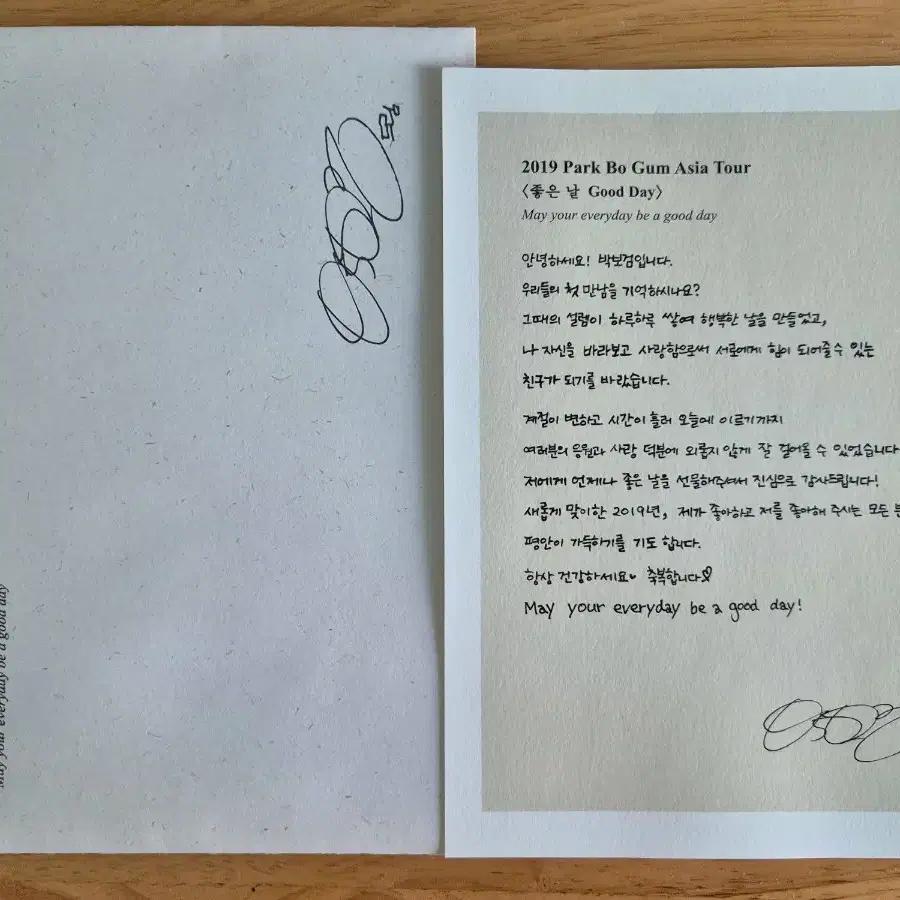 May your everyday be a good day
2019 Park Bo Gum Asia Tour
〈좋은 날 Good Day〉
May your everyday be a good day
안녕하세요! 박보검입니다.
우리들의 첫 만남을 기억하시나요?
그때의 설렘이 하루하루 쌓여 행복한 날을 만들었고,
나 자신을 바라보고 사랑함으로써 서로에게 힘이 되어줄 수 있는
친구가 되기를 바랐습니다.
계절이 변하고 시간이 흘러 오늘에 이르기까지
여러분의 응원과 사랑 덕분에 외롭지 않게 잘 걸어올 수 있었습니다
저에게 언제나 좋은 날을 선물해주셔서 진심으로 감사드립니다!
새롭게 맞이한 2019년, 제가 좋아하고 저를 좋아해 주시는 모든 분
평안이 가득하기를 기도 합니다.
항상 건강하세요♥ 축복합니다♡
May your everyday be a good day!